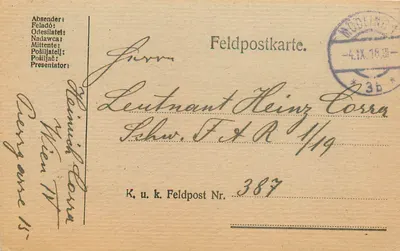 Absender:
Feladó:
Odesílatel:
Nadawca:
Mittente:
Pošiljatelj:
Pošiljač:
Presentator:
Heinrich Corra
Wien IV
15
Feldpostkarte.
MÖDLING 1
-4.IX.18.
* 3b *
Herrn
Leutnant Heinz Corra
Schw. F A R 1/19
K. u. k. Feldpost Nr. 387